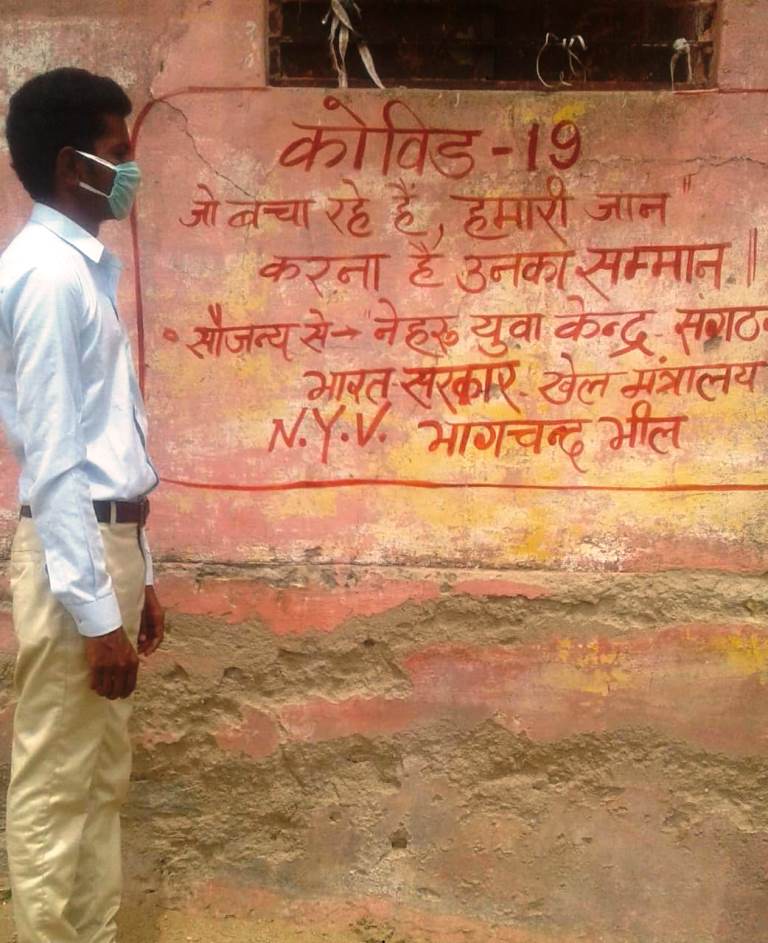 कोविड-19
जो बचा रहे हैं, हमारी जान"
करना है उनका सम्मान॥
• सौजन्य से→ "नेहरू युवा केन्द्र संगठ
भारत सरकार. खेल मंत्रालय
N.Y.V. भागचन्द भील